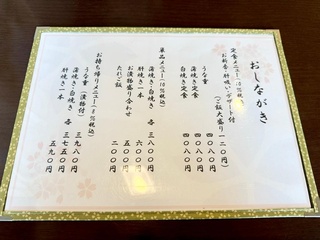 おしながき
定食メニュー(10%税込)
(お新香・肝吸い・デザート付)
(ご飯大盛り一二〇円)
うな重 四〇八〇円
蒲焼き定食 四〇八〇円
白焼き定食 四〇八〇円
単品メニュー(10%税込)
蒲焼き・白焼き 各 三八〇〇円
肝焼き一本 六〇〇円
お漬物盛り合わせ 五〇〇円
たれご飯 二〇〇円
お持ち帰りメニュー(8%税込)
うな重(漬物付) 三九八〇円
蒲焼き・白焼き 各 三七五〇円
肝焼き一本 五九〇円